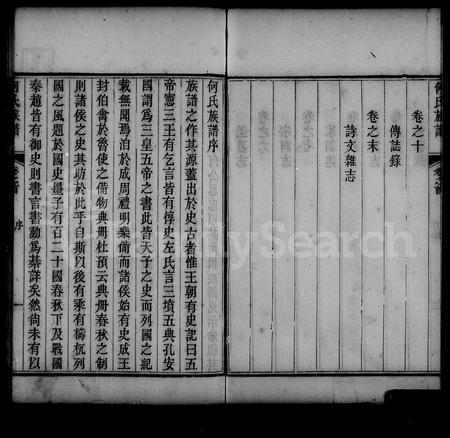 何氏族譜
卷之十
傳誌錄
卷之末
詩文雜志
何氏族譜序
族譜之作其源蓋出於史古者惟王朝有史記曰五
帝憲三王有乞言皆有惇史左氏言三墳五典孔安
國謂為三皇五帝之書此皆天子之史而列國之紀
載無聞焉洎於成周禮明樂備而諸侯始有史成王
封伯禽於魯使之備物典冊杜預云典冊春秋之制
則諸侯之史其昉於此乎自斯以後有乘有檮杌列
國之風題於國史墨子有百二十國春秋下及戰國
秦趙皆有御史則書言書動為綦詳矣然尚未有以
何氏族譜
卷之首
序
FamilySearch